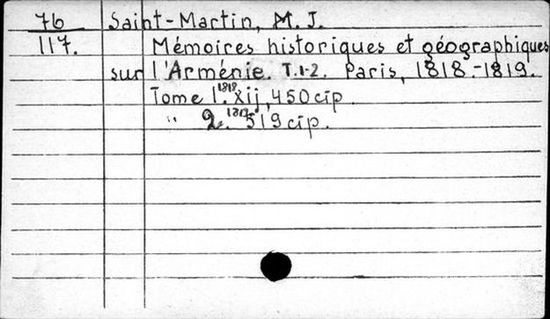 76 Saint-Martin, M. J.
117. Mémoires historiques et géographiques
sur l'Arménie. T.1-2. Paris, 1818.-1819.
Tome 1. 1818 Xij, 450 cтр.
" 2. 519 cтр.